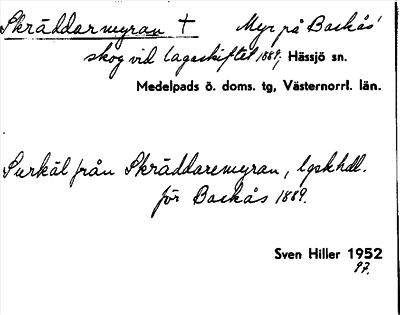 Skräddarmyran † Myr på Baskås'
skog vid lagaskiftet 1889, Hässjö sn.
Medelpads ö. doms. tg, Västernorrl. län.
Surkäl från Skräddaremyran, lgskhdl.
för Baskås 1889.
Sven Hiller 1952
97.